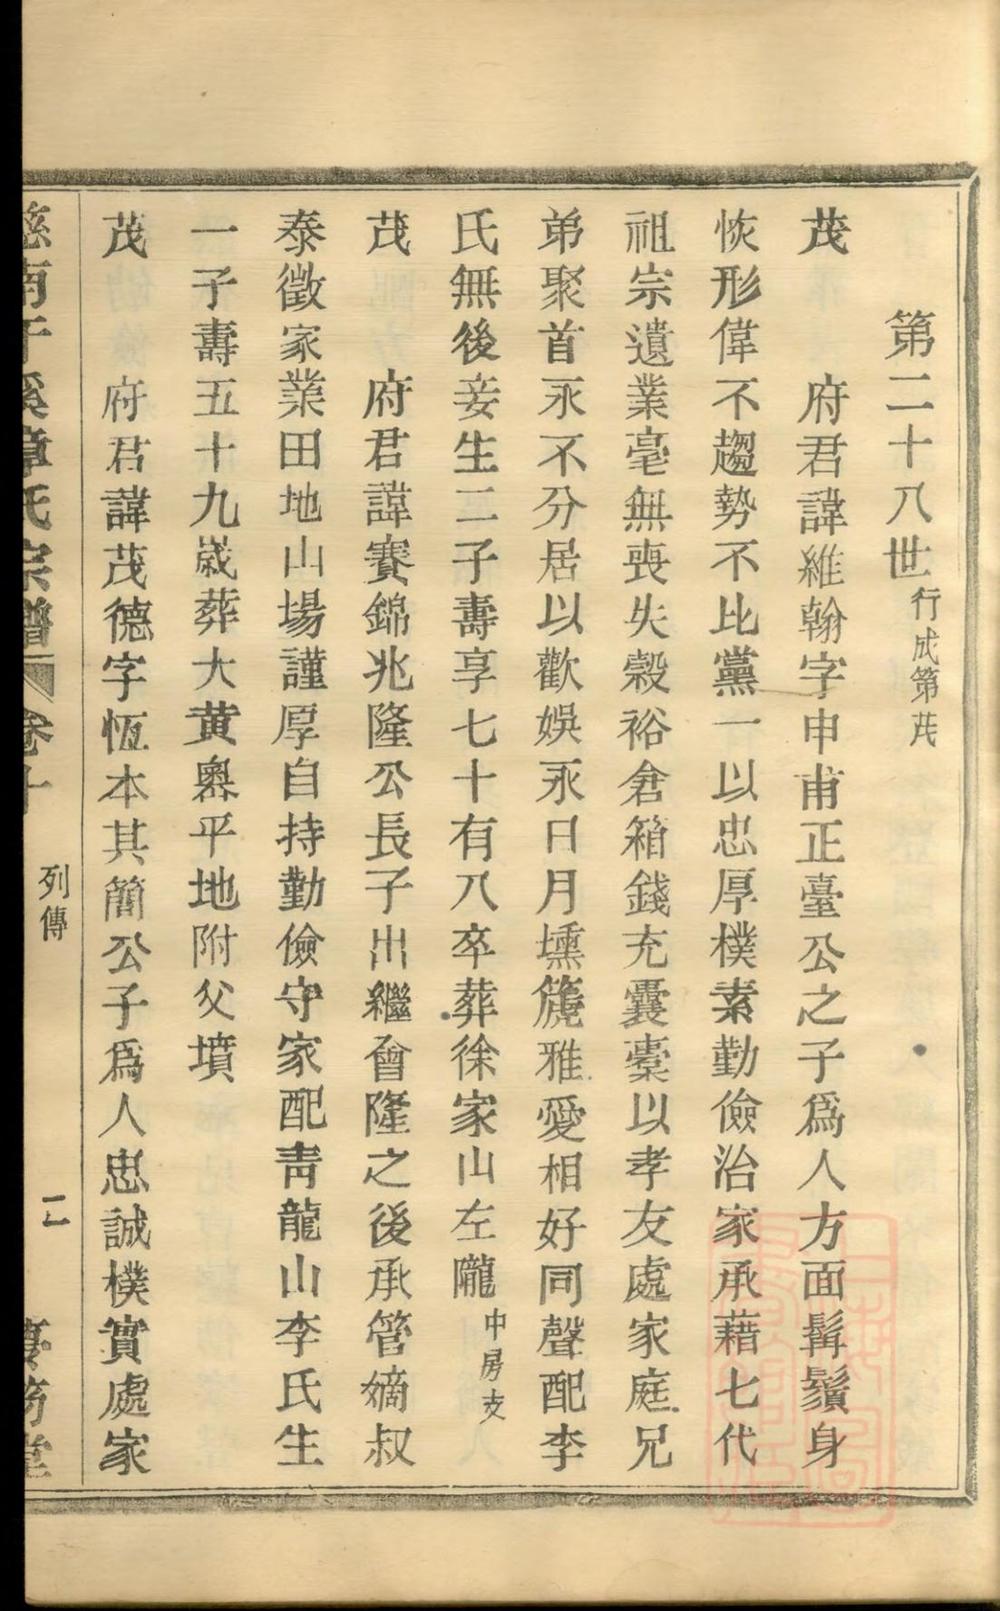 第二十八世行成第茂
茂　府君諱維翰字申甫正臺公之子爲人方面髯鬚身
恢形偉不趨勢不比黨一以忠厚樸素勤儉治家承藉七代
祖宗遺業毫無喪失穀裕倉箱錢充囊橐以孝友處家庭兄
弟聚首永不分居以歡娛永日月壎篪雅愛相好同聲配李
氏無後妾生二子壽享七十有八卒葬徐家山左隴中房支
茂　府君諱賽錦兆隆公長子出繼會隆之後承管嫡叔
泰徵家業田地山場謹厚自持勤儉守家配靑龍山李氏生
一子壽五十九歲葬大黃奧平地附父墳
茂　府君諱茂德字恆本其簡公子爲人忠誠樸實處家
慈南干溪章氏宗譜卷十　列傳　二